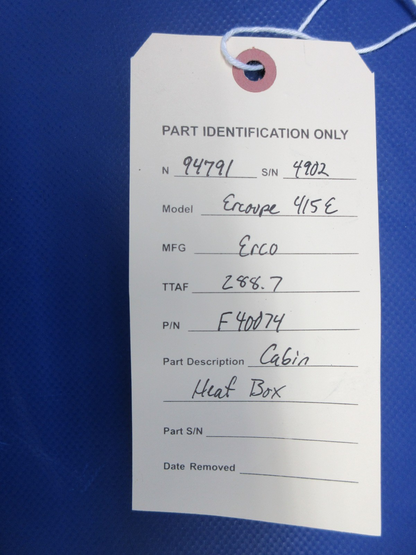 PART IDENTIFICATION ONLY
N 94791 S/N 4902
Model Ercoupe 415E
MFG Erco
TTAF 288.7
P/N F40074
Part Description Cabin
Heat Box
Part S/N
Date Removed